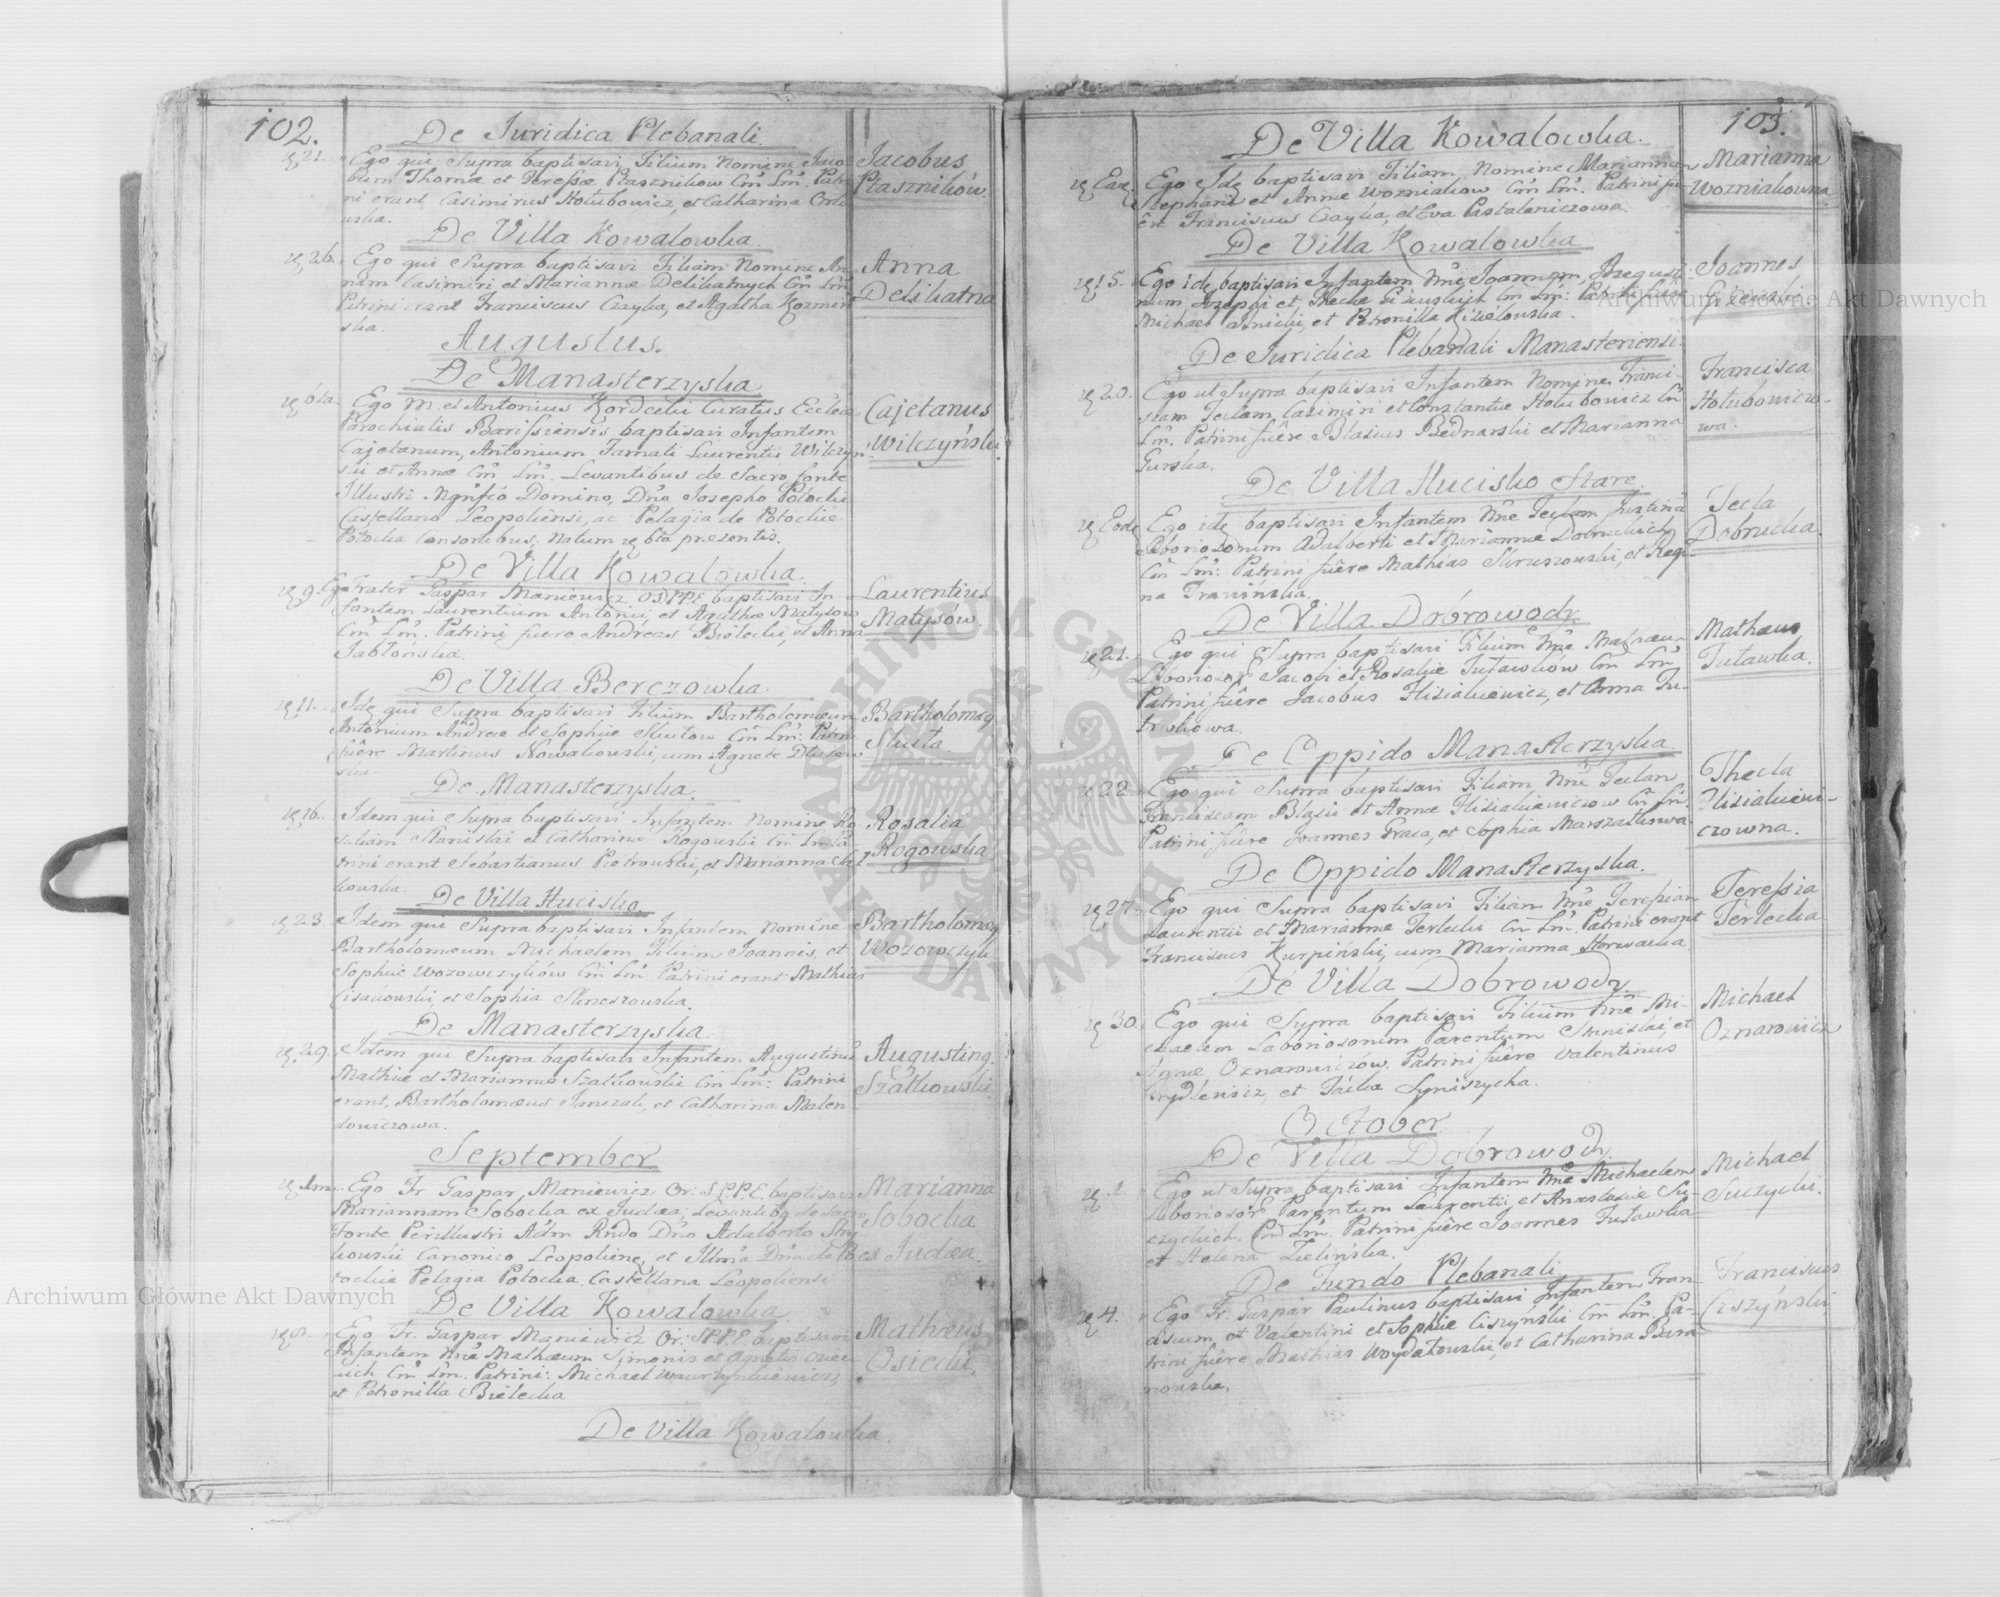 102.
De Juridica Plebanali.
21. Ego qui Supra baptisavi Filium Nomine Jaco-
bum Thomæ et Teressæ Ptaszników Cm̃ Lm̃. Patri-
ni erant Casimirus Hołubowicz, et Catharina
Jacobus
Ptaszników.
De Villa Kowalowka.
26. Ego qui Supra baptisavi Filiam Nomine An-
nam Casimiri et Mariannæ Delikatnych Cm̃ Lm̃
Patrini erant Franciscus Czayka, et Agatha Kozmin
ska.
Anna
Delikatna
Augustus.
De Manasterzyska
6ta. Ego M. et Antonius Kordecki Curatus Ecclesiæ
Parochialis Barissiensis baptisavi Infantem
Cajetanum, Antonium Famati Laurentii Wilczyn-
skii et Annæ Cm̃ Lm̃. Levantibus de Sacro fonte
Illustri Mgnfco Domino, Dño Josepho Potocki
Castellano Leopoliensi, ac Pelagia de Potockie
Potocka Consortibus, Natum 6ta præsentis.
Cajetanus
Wilczyński.
De Villa Kowalowka.
9. Ego Frater Gaspar Maniewicz OSPPE baptisavi In-
fantem Laurentium Antonii et Agathæ Matysow
Cm̃ Lm̃. Patrini fuere Andreas Bielecki, et Anna
Jabłońska.
Laurentius
Matysów.
De Villa Berezowka.
11. Idē qui Supra baptisavi Filium Bartholomæum
Antonium Andreæ et Sophiæ Skutow Cm̃ Lm̃: Patrini
fuêre Martinus Nowakowski, cum Agnete
Bartholomæg
Skuta.
De Manasterzyska.
16. Idem qui Supra baptisavi Infantem Nomine Ro
saliam Stanislai et Catharinæ Rogowskii Cm̃ Lm̃ Pa
trini erant Sebastianus Piotrowski, et Marianna
kowska.
Rosalia
Rogowska
De Villa Huciska.
23. Idem qui Supra baptisavi Infantem Nomine
Bartholomæum Michaelem Filium Joannis, et
Sophiæ Wozowczyków Cm̃ Lm̃ Patrini erant Mathias
Cisakowski, et Sophia
Bartholomæg
Wozowczyk
De Manasterzyska.
29. Idem qui Supra baptisavi Infantem Augustinũ
Mathiæ et Mariannæ Szatkowskii Cm̃ Lm̃: Patrini
erant, Bartholomæus Janczak, et Catharina Malen-
dowiczowa.
Augusting
Szatkowski.
September
1ma. Ego Fr Gaspar Maniewicz Or: S.P.P.E. baptisavi
Mariannam Sobocka ex Judæa; Levantibg de Sacro
Fonte Perillustri Adm Rndo Dño Adalberto
kowski Canonico Leopolienẽ, et Illmã Dña de Po
tockie Pelagia Potocka Castellana Leopoliensi
Marianna
Sobocka
ex Judæa.
De Villa Kowalowka.
8. Ego Fr. Gaspar Maniewicz Or: S.P.P.E baptisavi
Infantem Nnẽ Mathæum Simonis et Agnetis
Cm̃ Lm̃. Patrini: Michael
et Petronilla Bielecka
Mathæus
Osiecki.
De Villa Kowalowka.
103.
De Villa Kowalowka.
Eadẽ. Ego Idẽ baptisavi Filiam, Nomine Mariannam
Stephani et Annæ Wozniakow Cm̃ Lm̃. Patrini fu
êre Franciscus Czayka, et Eva Pastalniczowa.
Marianna
Wozniakowna
De Villa Kowalowka
15. Ego idẽ baptisavi Infantem Nnẽ Joannem, Augusti-
num Josephi et Theclæ Giżewskich Cm̃ Lm̃: Patrini fuere
Michael Ilnicki, et Petronilla Kizelowska.
Joannes
Giżewski
De Juridica Plebanali Manasteriensi
20. Ego ut Supra baptisavi Infantem Nomine Franci-
scam Teclam, Casimiri et Constantiæ Hołubowicz Cm̃
Lm̃. Patrini fuêre Blasius Bednarski et Marianna
Gurska.
Francisca
Hołubowiczo-
wa.
De Villa Hucisko Stare.
Eodẽ Ego idẽ baptisavi Infantem Nnẽ Teclam
Laboriosorum Adalberti et Mariannæ Dobruckich
Cm̃ Lm̃: Patrini fuêre Mathias et Regi
na
Tecla
Dobrucka.
De Villa Dobrowody.
21. Ego qui Supra baptisavi Filium Nnẽ Mathæum
Laboriosor̃ Jacobi et Rosaliæ Tutawków Cm̃ Lm̃
Patrini fuêre Jacobus Hliziakiewicz, et Anna Tu-
Mathæus
Tutawka.
De Oppido Manasterzyska.
22. Ego qui Supra baptisavi Filiam Nnẽ Teclam
Franciscam Blasii et Annæ Hliziakiewiczow Cm̃ Lm̃.
Patrini fuêre Joannes Graca, et Sophia Marszałkowa
Thecla
Hliziakiewi-
czowna.
De Oppido Manasterzyska.
27. Ego qui Supra baptisavi Filiam Nnẽ Teressiam
Laurentii et Mariannæ Terlecki Cm̃ Lm̃. Patrini erant
Franciscus Kurpiński, cum Marianna Horwacka
Teressia
Terlecka
De Villa Dobrowody.
30. Ego qui Supra baptisavi Filium Nnẽ Mi-
chaelem Laboriosorum Parentum Stanislai, et
Agnæ Oznarowiczów. Patrini fuêre Valentinus
et Tacka
Michael
Oznarowicz
October
De Villa Dobrowody.
1. Ego ut Supra baptisavi Infantem Nnẽ Michaelem
Laboriosor̃ Parentum Laurentii, et Anastasiæ Su-
czyckich. Cm̃ Lm̃. Patrini fuêre Joannes Tutawka
et Helena Zielińska.
Michael
Suczycki.
De Fundo Plebanali
4. Ego Fr. Gaspar Paulinus baptisavi Infantem Fran-
ciscum, et Valentini et Sophiæ Ciszyński Cm̃ Lm̃. Pa-
trini fuêre Mathias Woydatowski, et Catharina Bara
nowska.
Franciscus
Ciszyński
Archiwum Główne Akt Dawnych
Archiwum Główne Akt Dawnych
ARCHIWUM GŁÓWNE AKT DAWNYCH